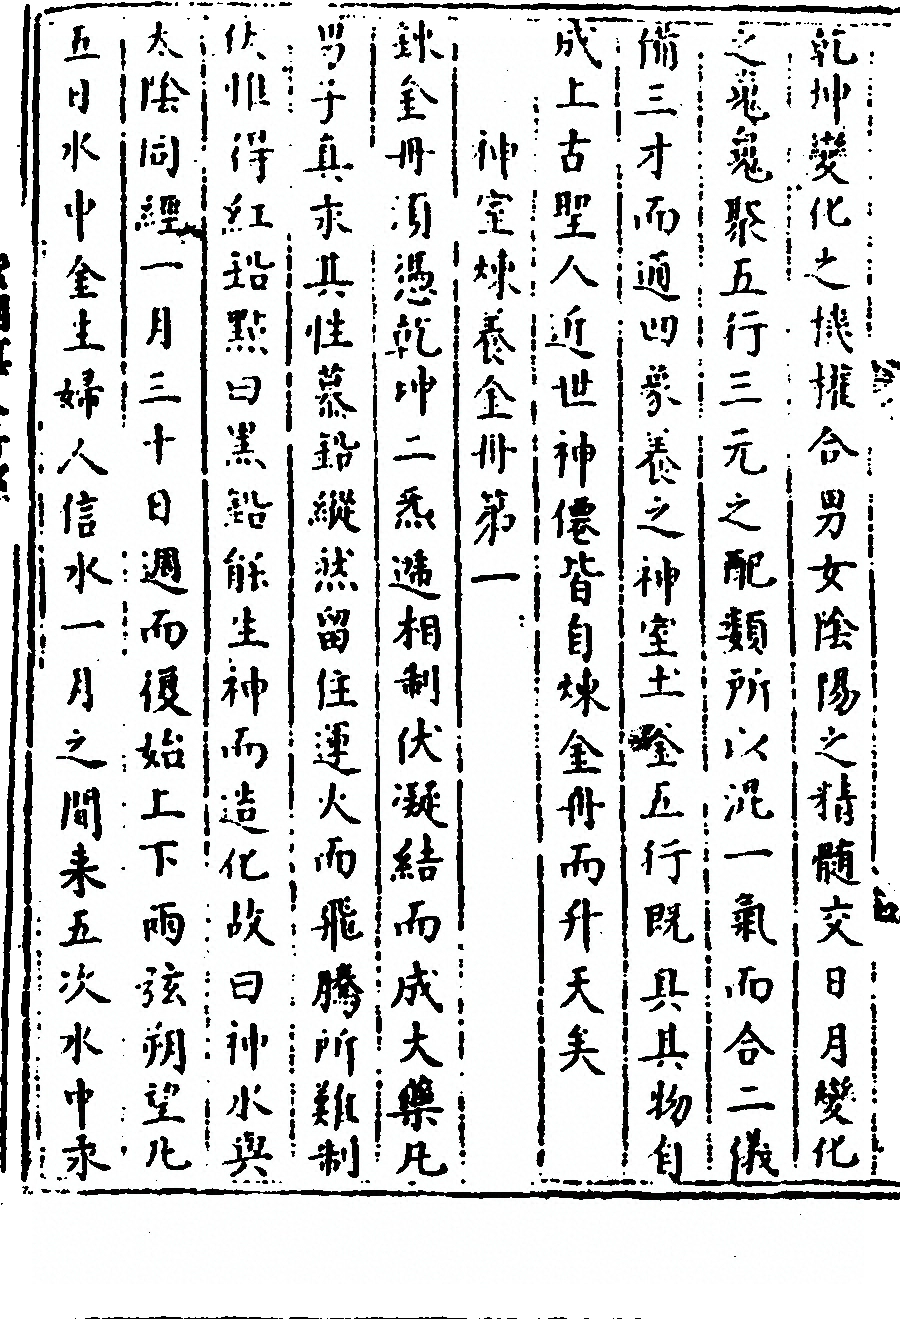 乾坤變化之機權合男女陰陽之精髓交日月變化
之䰟魄聚五行三元之配類所以混一氣而合二儀
備三才而通四象養之神室土釜五行既具其物自
成上古聖人近世神僊皆自煉金丹而升天矣
神室煉養金丹第一
鍊金丹須憑乾坤二炁遞相制伏凝結而成大藥凡
男子真汞其性慕鉛縱然留住運火而飛騰所難制
伏惟得紅鉛點曰黑鉛能生神而造化故曰神水與
太陰同經一月三十日週而復始上下兩弦朔望凡
五日水中金生婦人信水一月之間来五次水中汞